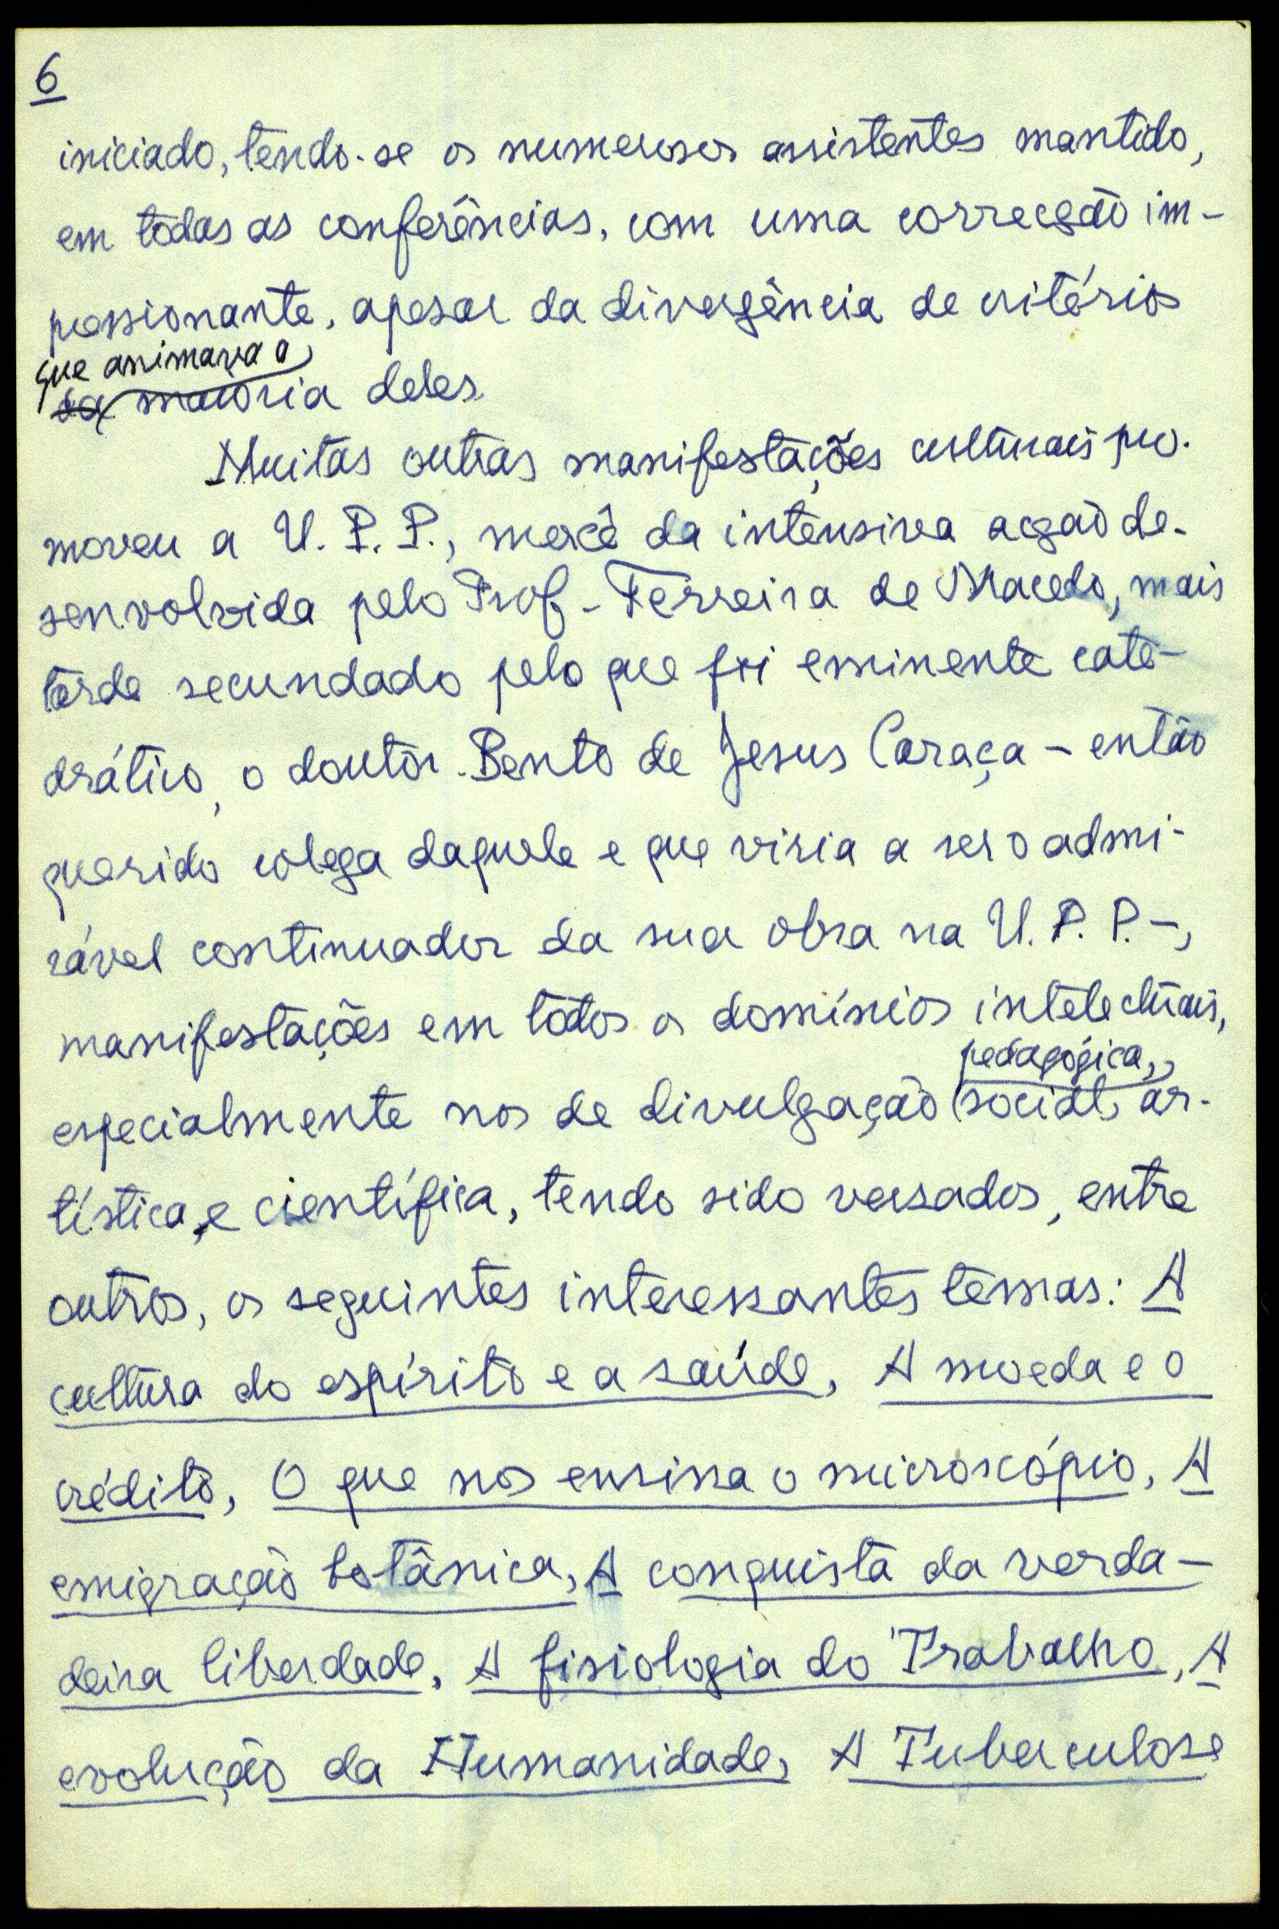 6
iniciado, tendo-se os numerosos assistentes mantido,
em tôdas as conferências, com uma correcção im-
pressionante, apesar da divergência de critérios
que animava a
da maioria deles.
Muitas outras manifestações culturais pro-
moveu a U. P. P., mercê da intensiva acção de-
senvolvida pelo Prof. Ferreira de Macedo, mais
tarde secundado pelo que foi eminente cate-
drático, o doutor Bento de Jesus Caraça – então
querido colega daquele e que viria a ser o admi-
rável continuador da sua obra na U. P. P. –,
manifestações em todos os domínios intelectuais,
pedagógica,
especialmente nos de divulgação social, ar-
tística, e científica, tendo sido versados, entre
outros, os seguintes interessantes temas: A
cultura do espírito e a saúde, A moeda e o
crédito, O que nos ensina o microscópio, A
emigração botânica, A conquista da verda-
deira liberdade, A fisiologia do Trabalho, A
evolução da Humanidade, A Tuberculose